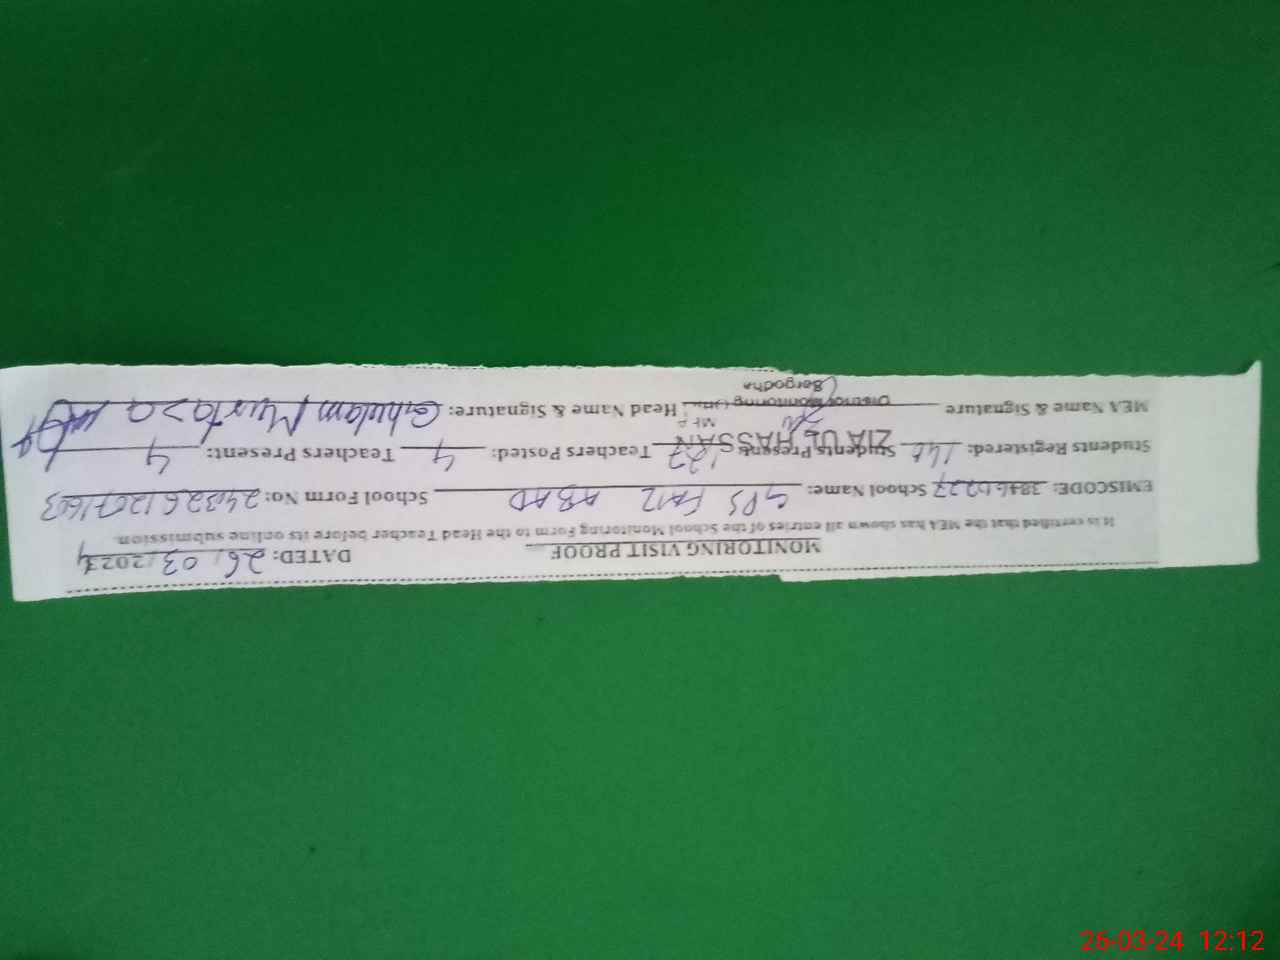 MONITORING VISIT PROOF DATED: 26/03/2024
It is certified that the MEA has shown all entries of the School Monitoring Form to the Head Teacher before its online submission.
EMISCODE: School Name: GPS FAIZ ABAD School Form No:
Students Registered: Students Present: 127 Teachers Posted: 4 Teachers Present: 4
ZIA UL HASSAN
MEA
MEA Name & Signature Head Name & Signature: Ghulam Murtaza
District Monitoring
Sargodha
26-03-24 12:12